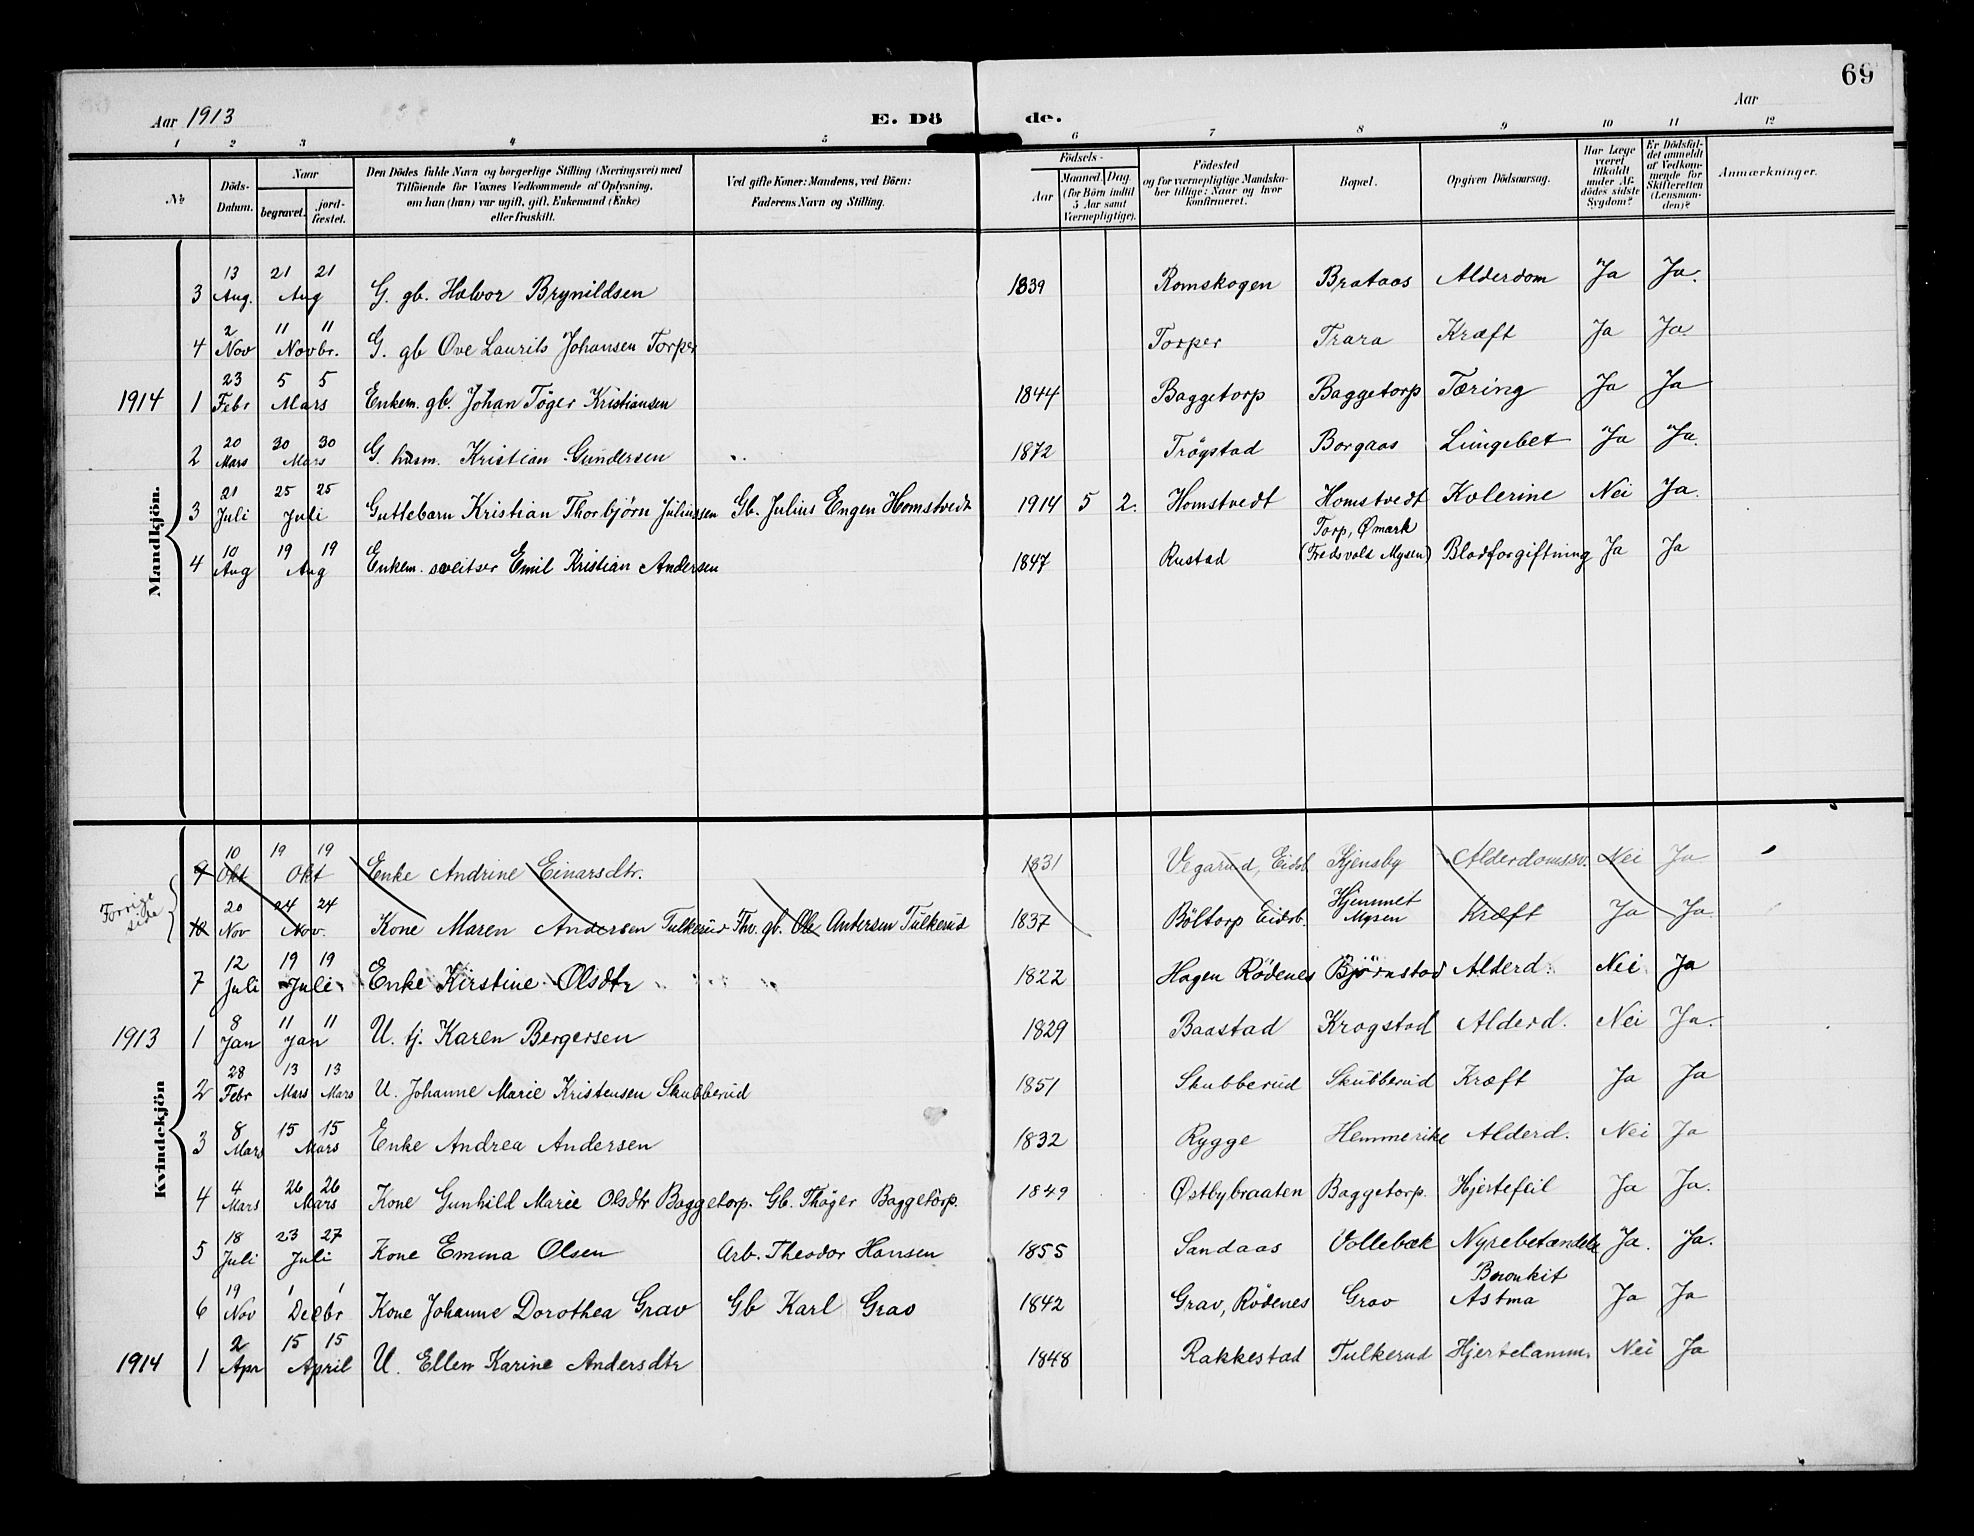 69
Aar 1913
E. Dö
de.
Aar
1 2 3 4 5 6 7 8 9 10 11 12
№
Döds-Datum.
Naar
begravet.
jord-fæstet.
Den Dödes fulde Navn og borgerlige Stilling (Næringsvei) med Tilföiende for Voxnes Vedkommende af Oplysning, om han (hun) var ugift, gift, Enkemand (Enke) eller fraskilt.
Ved gifte Koner: Mandens, ved Börn: Faderens Navn og Stilling.
Födsels-
Aar
Maaned. Dag.
(for Börn indtil 5 Aar samt Værnepligtige).
Födested og for værnepligtige Mandskaber tillige: Naar og hvor konfirmeret.
Bopæl.
Opgiven Dödsaarsag.
Har Læge været tilkaldt under Afdödes sidste Sygdom?
Er Dödsfaldet anmeldt af Vedkommende for Skifteretten (Lensmanden)?
Anmærkninger.
Mandkjön.
3 13 Aug. 21 21 Aug G. gb. Halvor Brynildsen 1839 Romskogen Brataas Alderdom Ja Ja.
4 2 Nov 11 11 Novbr. G. gb Ove Laurits Johansen Torper Torper Trara Kræft Ja Ja.
1914 1 23 Febr 5 5 Mars Enkem. gb. Johan Töger Kristiansen 1844 Baggetorp Baggetorp Tæring Ja Ja
2 20 Mars 30 30 Mars G. husm. Kristian Gundersen 1872 Trögstad Borgaas Lungebet Ja Ja.
3 21 Juli 25 25 Juli Guttebarn Kristian Thorbjørn Juliussen Gb. Julius Engen Homstvedt 1914 5 2. Homstvedt Homstvedt Kolerine Nei Ja.
4 10 Aug 19 19 Aug Enkem. sveitser Emil Kristian Andersen 1847 Rustad Torp, Ømark (Fredsvold Mysen) Blodforgiftning Ja Ja
Kvindekjön
Forrige side
9 10 Okt 19 19 Okt Enke Andrine Einarsdtr. 1831 Vegarud, Eidsb. Kjensby Alderdomssv. Nei Ja
10 20 Nov 24 24 Nov. Kone Maren Andersen Tulkerud Fhv. gb. Ole Andersen Tulkerud 1837 Böltorp Eidsb. Hjemmet Mysen Kræft Ja Ja.
7 12 Juli 19 19 Juli Enke Kirstine Olsdtr 1822 Hagen Rödenes Björnstad Alderd. Nei Ja
1913 1 8 Jan 11 11 Jan U. tj. Karen Bergersen 1829 Baastad Krogstad Alderd. Nei Ja.
2 28 Febr 13 Mars 13 Mars U. Johanne Marie Kristensen Skubberud 1851 Skubberud Skubberud Kræft Ja Ja
3 8 Mars 15 15 Mars Enke Andrea Andersen 1832 Rygge Hemmerike Alderd. Nei Ja
4 4 Mars 26 26 Mars Kone Gunhild Marie Olsdtr Baggetorp. Gb. Thöger Baggetorp. 1849 Østbybraaten Baggetorp. Hjertefeil Ja Ja.
5 18 Juli 23 27 Juli Kone Emma Olsen Arb. Theodor Hansen 1855 Sandaas Vollebæk Nyrebetændelse Ja. Ja.
6 19 Nov 1 1 Decbr Kone Johanne Dorothea Grav Gb Karl Grav 1842 Grav, Rödenes Grav Bronkit Astma Ja Ja
1914 1 2 Apr 15 15 April U. Ellen Karine Andersdtr 1848 Rakkestad Tulkerud Hjertelamm. Nei Ja